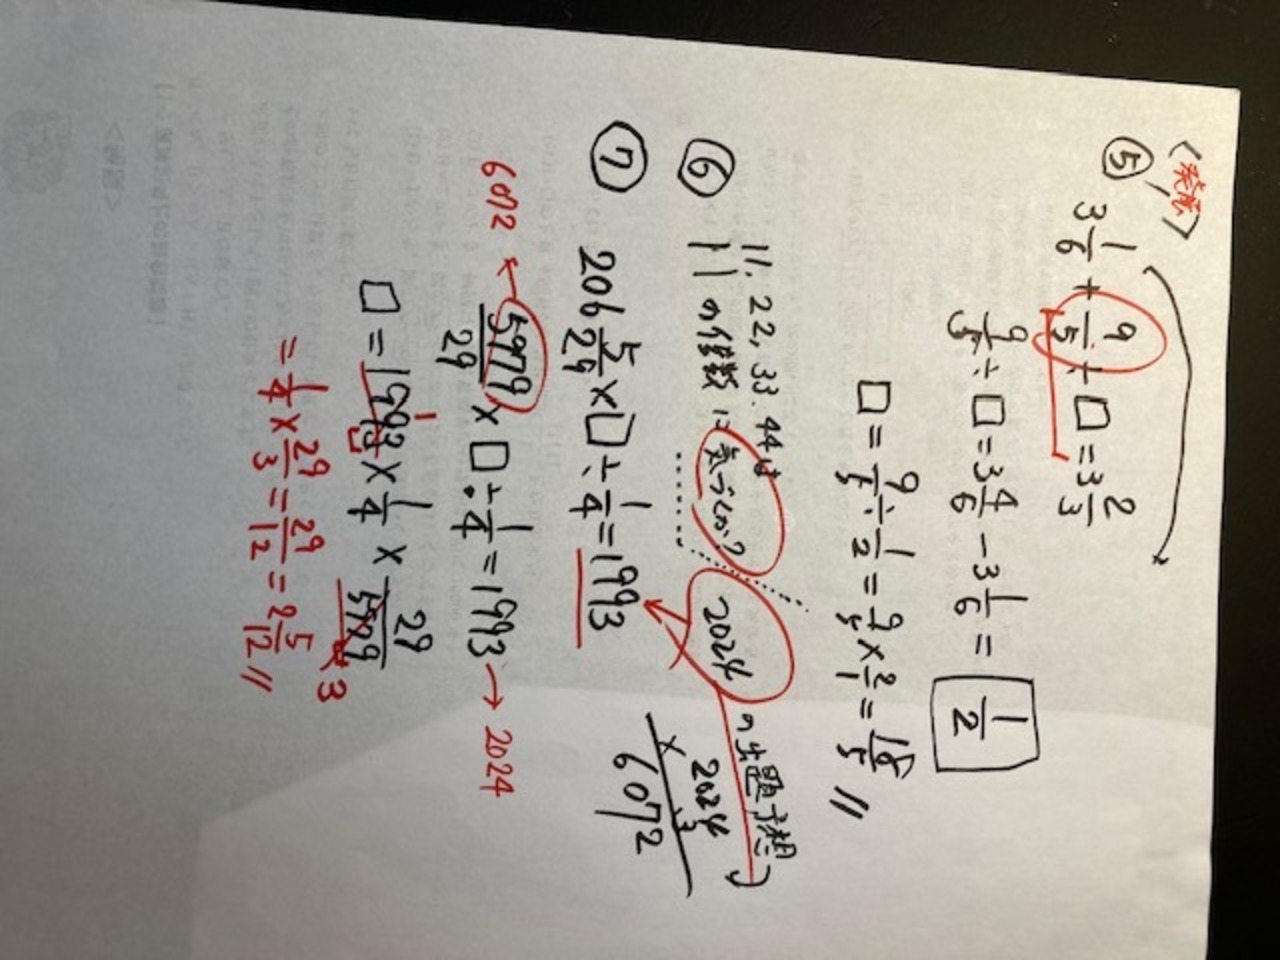 〈発展〉
⑤ 3 1/6 + 9/5 ÷ □ = 3 2/3
9/5 ÷ □ = 3 4/6 - 3 1/6 = 1/2
□ = 9/5 ÷ 1/2 = 9/5 × 2/1 = 18/5 //
⑥ 11, 22, 33, 44は
11の倍数に気づくか?
2024の出題予想
2024
× 3
6072
⑦ 206 5/29 × □ ÷ 1/4 = 1993
6072 ← 5979/29 × □ ÷ 1/4 = 1993 → 2024
□ = 1993 × 1/4 × 29/5979
1
3
= 1/4 × 29/3 = 29/12 = 2 5/12 //